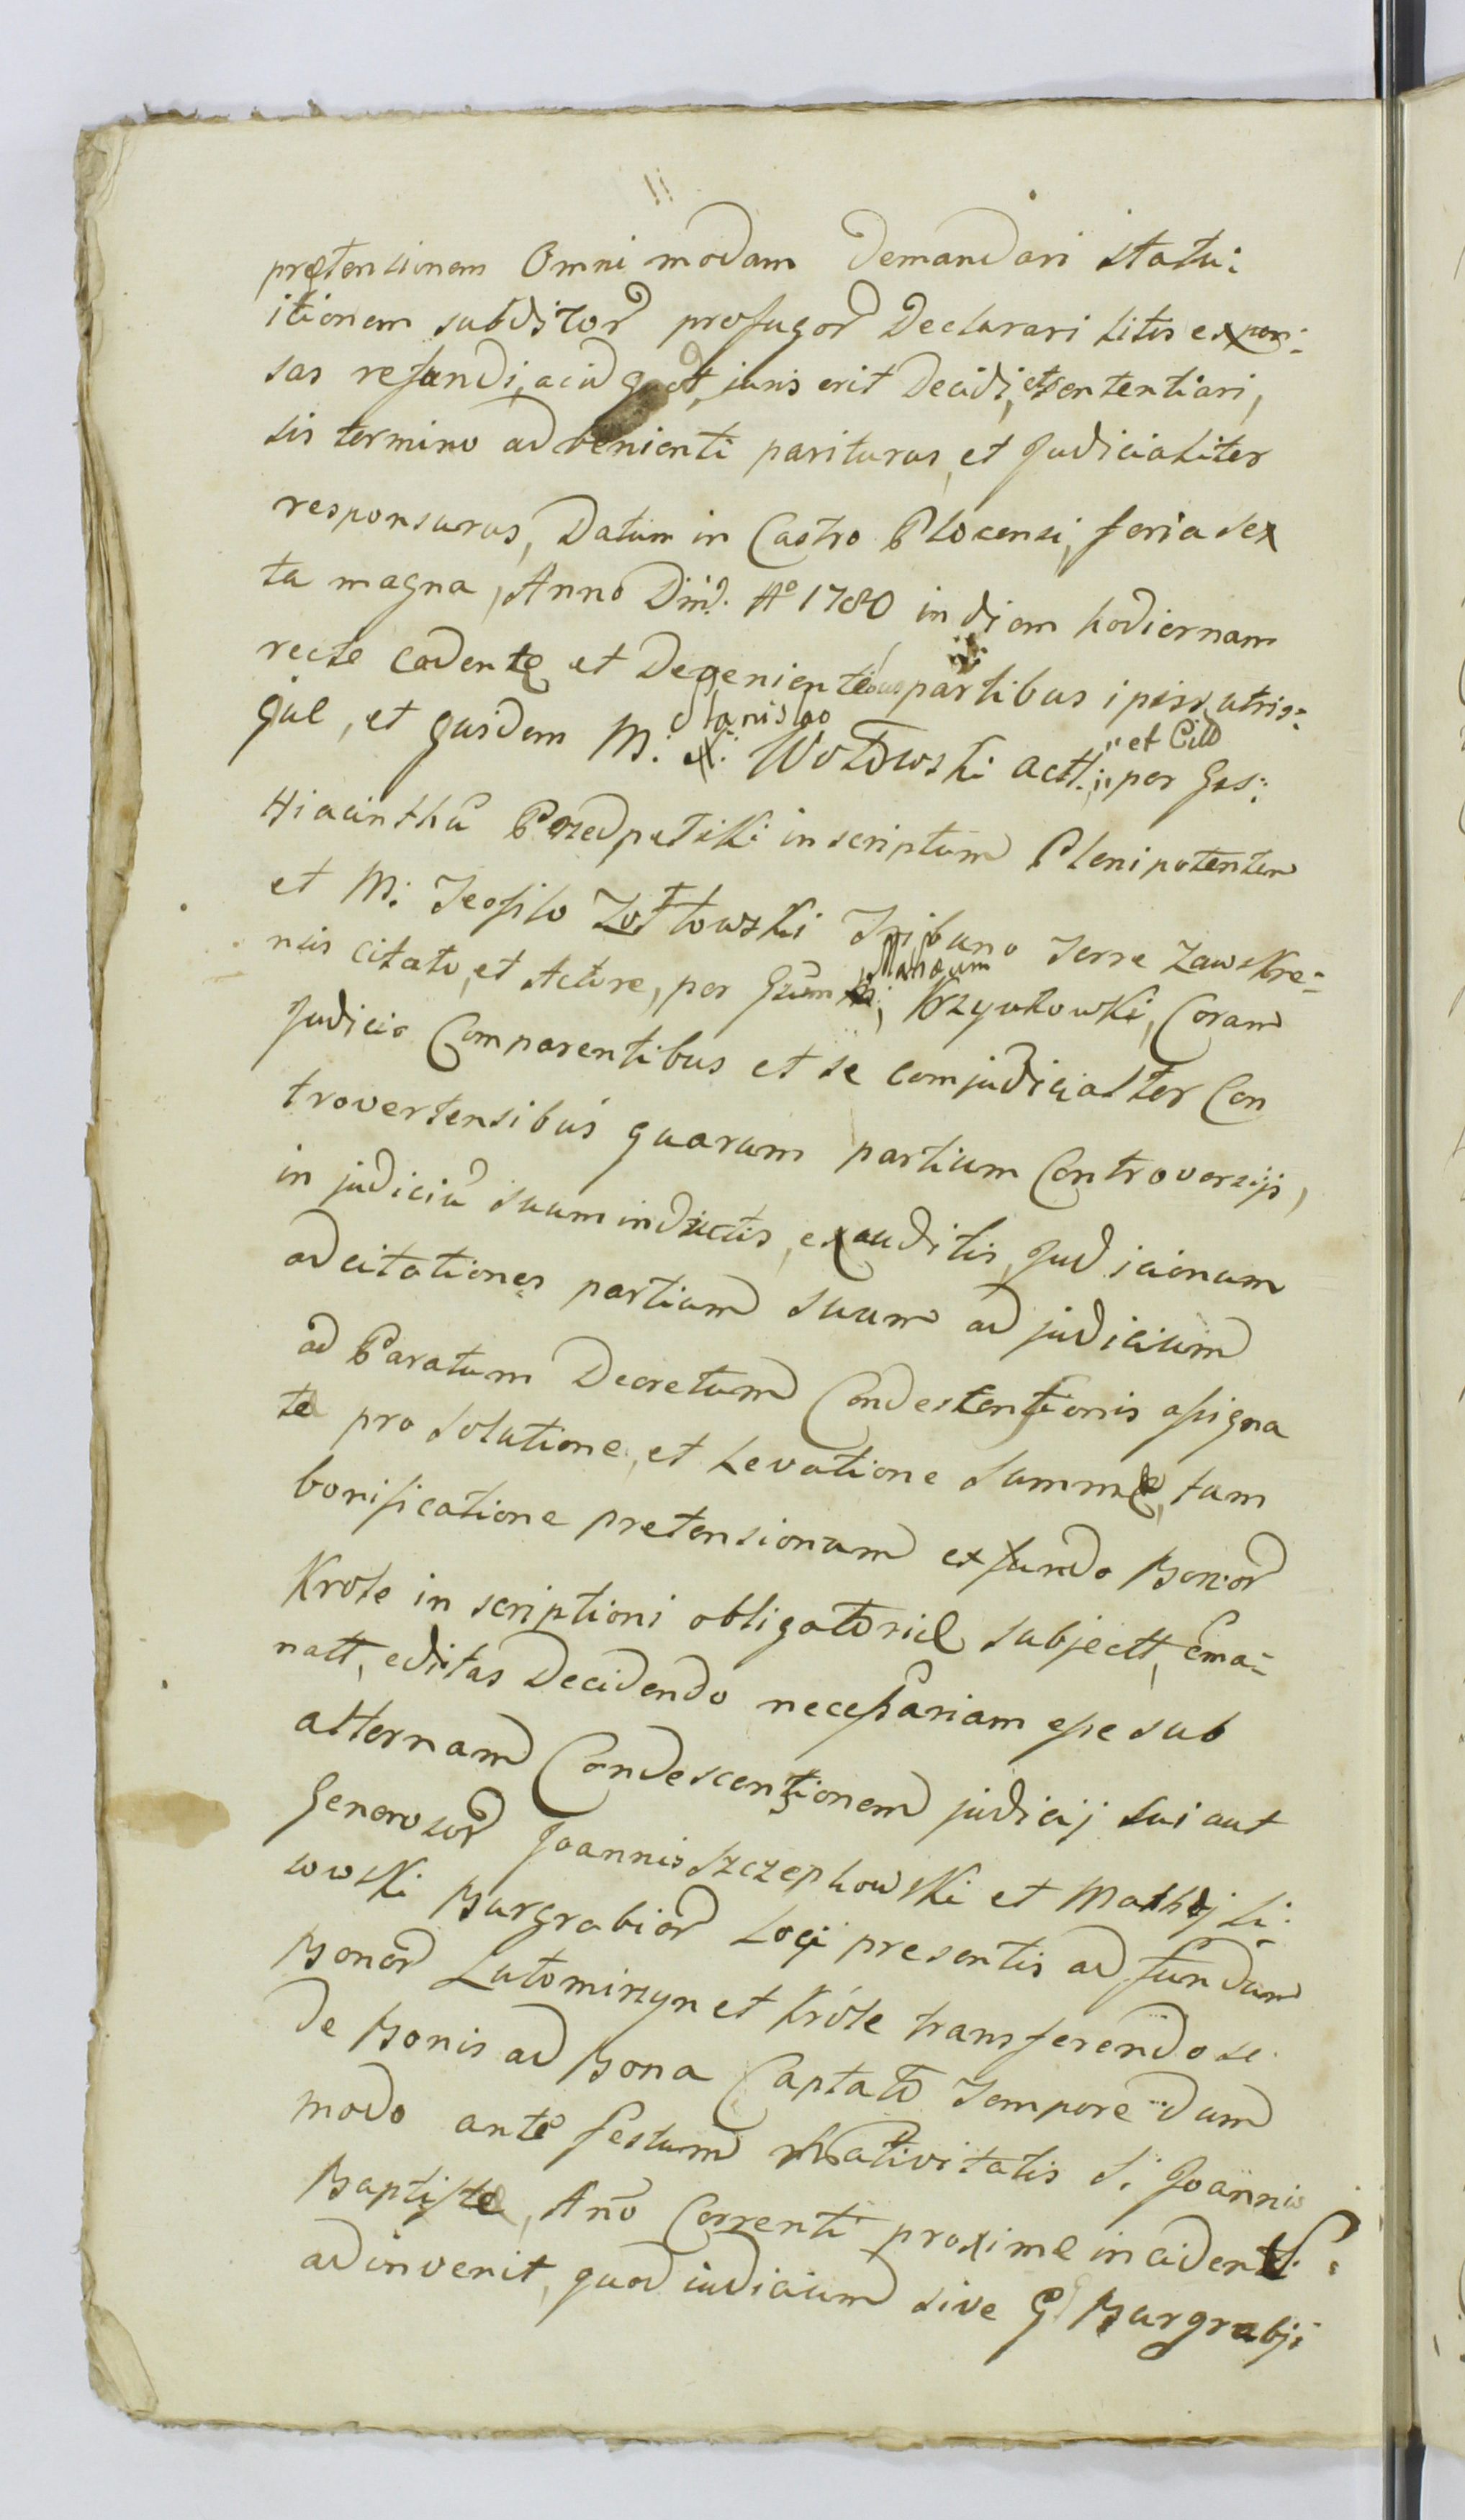 prętensionem Omni modam Demandari statu:
itionem subditor profugor Declarari litis expen:
sas refundi, acid quot, iuris erit Decidi, et sententiari,
sis termino advenienti pariturus, et Judicialiter
responsurus, Datum in Castro Plocensi, feria sex
ta magna, Anno Dni. Aº 1780 in diem hodiernam
recte cadente et Devenientē partibus ipsis utris:
que, et quidem M. Stanislao Wołowski actt. et Citto per Gs:
Hiacinthū Przedpełski inscriptum Plenipotentem
et M: Teofilo Zołtowski Tribuno Terre Zawskre:
nsis citato, et Actore, per Gsum Matheum Krzywkowski, Coram
Judicio Comparentibus et se comjudicialter Con
trovertensibus quarum partium Controversijs,
in judiciū suum inductis, exauditis, Judicionum
adcitationes partium suum ad judicium
ad Paratum Decretum Condestentionis assigna
te pro solutione, et Levatione Summę, tam
bonificatione pretensionum ex fundo Bonor
Krole inscriptioni obligatorie subjectt, Ema:
natt, editas Decidendo necessariam esse sub
alternam Condescensionem judicij sui aut
Generosor Joannis Szczepkowski et Mathej Li:
sowski Burgrabior Loci presentis ad fundum
Bonor Lutomirzyn et Króle transferendo se
de Bonis ad Bona Captato Tempore dum
modo ante festum Nativitatis S: Joannis
Baptiste, Anō Correnti proxime incidenti:
adinvenit, quod iudicium sive G Burgrabji